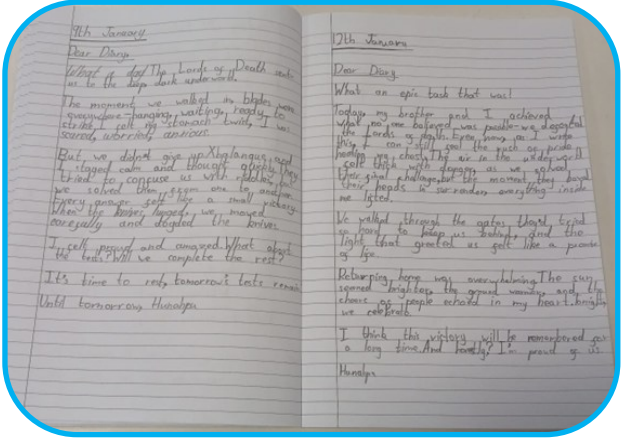 9th January
Dear Diary,
What a day! The Lords of Death sent
us to the deep dark underworld.
The moment we walked in blades were
everywhere-hanging, waiting, ready to
strike. I felt my stomach twist, I was
scared, worried, anxious.
But, we didn't give up. Xbalanque and
I stayed calm and thought quickly. They
tried to confuse us with riddles, but
we solved them from one to another.
Every answer felt like a small victory.
When the knives we moved
carefully and dogded the knives.
I felt proud and amazed. What about
the tests? Will we complete the rest?
It's time to rest, tomorrow's tests remain
Until tomorrow, Hunahpu
12th January
Dear Diary
What an epic task that was!
Today, my brother and I achieved
what no one believed was possible-we defeated
the Lords of death. Even now, as I write
this, I can still feel the rush of pride
my chest. The air in the underworld
felt thick with as we solved
their final challenge, but the moment they bowed
their heads in surrender, everything inside
me lifted.
We walked through the gates they'd tried
so hard to keep us behind, and the
light that greeted us felt like a
of life.
Returning home was overwhelming. The sun
seemed brighter, the ground warmer, and the
cheers of people echoed in my heart. Tonight,
we celebrate!
I think this victory will be remembered for
a long time. And honestly? I'm proud of us.
Hunahpu